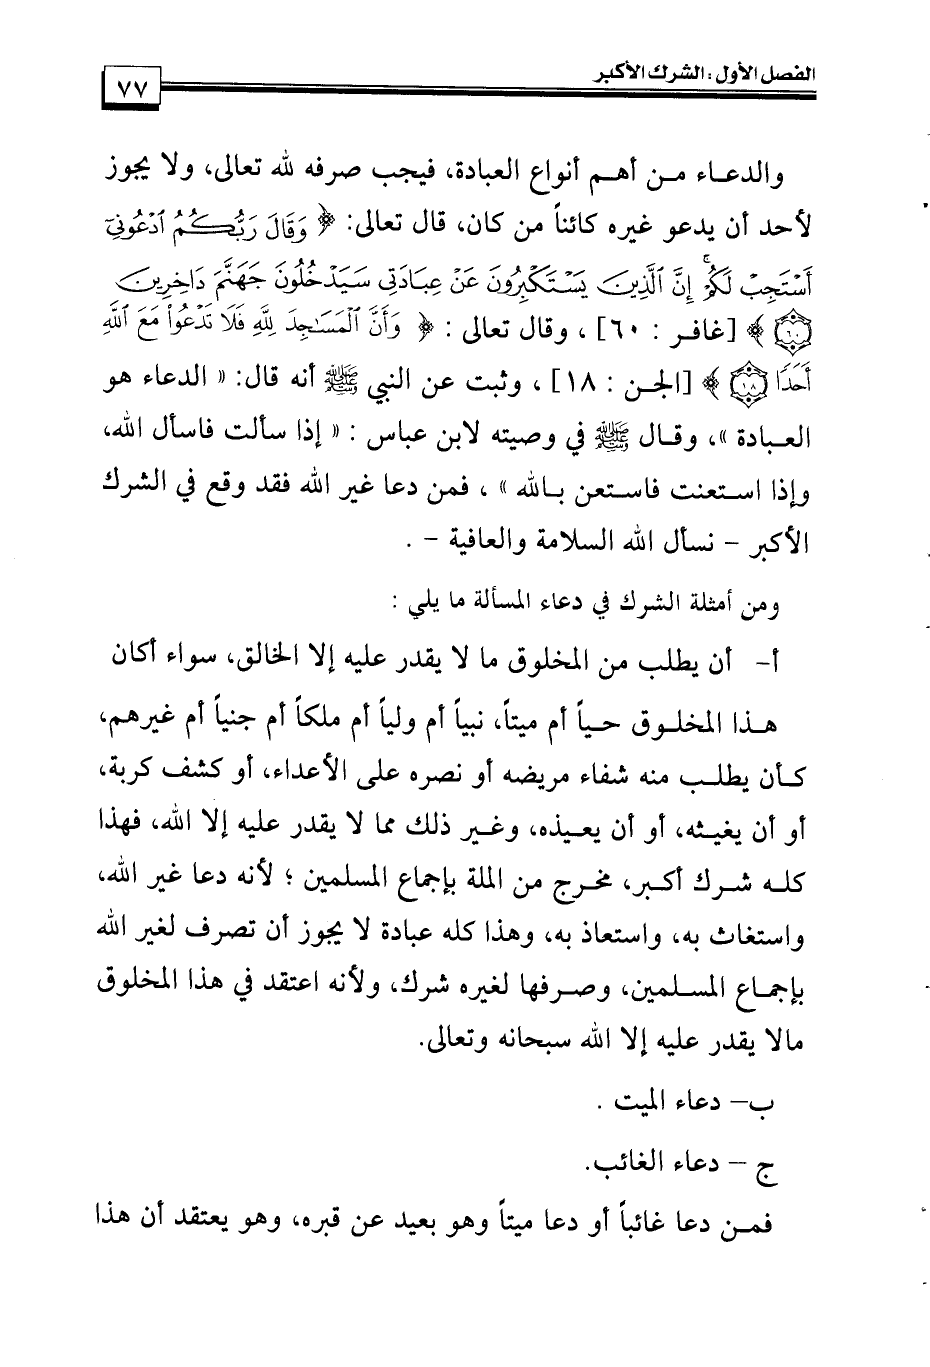 الفصل الأول : الشرك الأكبر
٧٧
والدعاء من أهم أنواع العبادة، فيجب صرفه لله تعالى، ولا يجوز
لأحد أن يدعو غيره كائناً من كان، قال تعالى: ﴿ وَقَالَ رَبُّكُمُ ٱدْعُونِىٓ
أَسْتَجِبْ لَكُمْ ۚ إِنَّ ٱلَّذِينَ يَسْتَكْبِرُونَ عَنْ عِبَادَتِى سَيَدْخُلُونَ جَهَنَّمَ دَاخِرِينَ
۝٦٠ ﴾ [غافر : ٦٠] ، وقال تعالى : ﴿ وَأَنَّ ٱلْمَسَٰجِدَ لِلَّهِ فَلَا تَدْعُوا۟ مَعَ ٱللَّهِ
أَحَدًا ۝١٨ ﴾ [الجن : ١٨] ، وثبت عن النبي ﷺ أنه قال: « الدعاء هو
العبادة »، وقال ﷺ في وصيته لابن عباس : « إذا سألت فاسأل الله،
وإذا استعنت فاستعن بالله » ، فمن دعا غير الله فقد وقع في الشرك
الأكبر – نسأل الله السلامة والعافية – .
ومن أمثلة الشرك في دعاء المسألة ما يلي :
أ- أن يطلب من المخلوق ما لا يقدر عليه إلا الخالق، سواء أكان
هذا المخلوق حياً أم ميتاً، نبياً أم ولياً أم ملكاً أم جنياً أم غيرهم،
كأن يطلب منه شفاء مريضه أو نصره على الأعداء، أو كشف كربة،
أو أن يغيثه، أو أن يعيذه، وغير ذلك مما لا يقدر عليه إلا الله، فهذا
كله شرك أكبر، مخرج من الملة بإجماع المسلمين ؛ لأنه دعا غير الله،
واستغاث به، واستعاذ به، وهذا كله عبادة لا يجوز أن تصرف لغير الله
بإجماع المسلمين، وصرفها لغيره شرك، ولأنه اعتقد في هذا المخلوق
مالا يقدر عليه إلا الله سبحانه وتعالى.
ب– دعاء الميت .
ج – دعاء الغائب.
فمن دعا غائباً أو دعا ميتاً وهو بعيد عن قبره، وهو يعتقد أن هذا